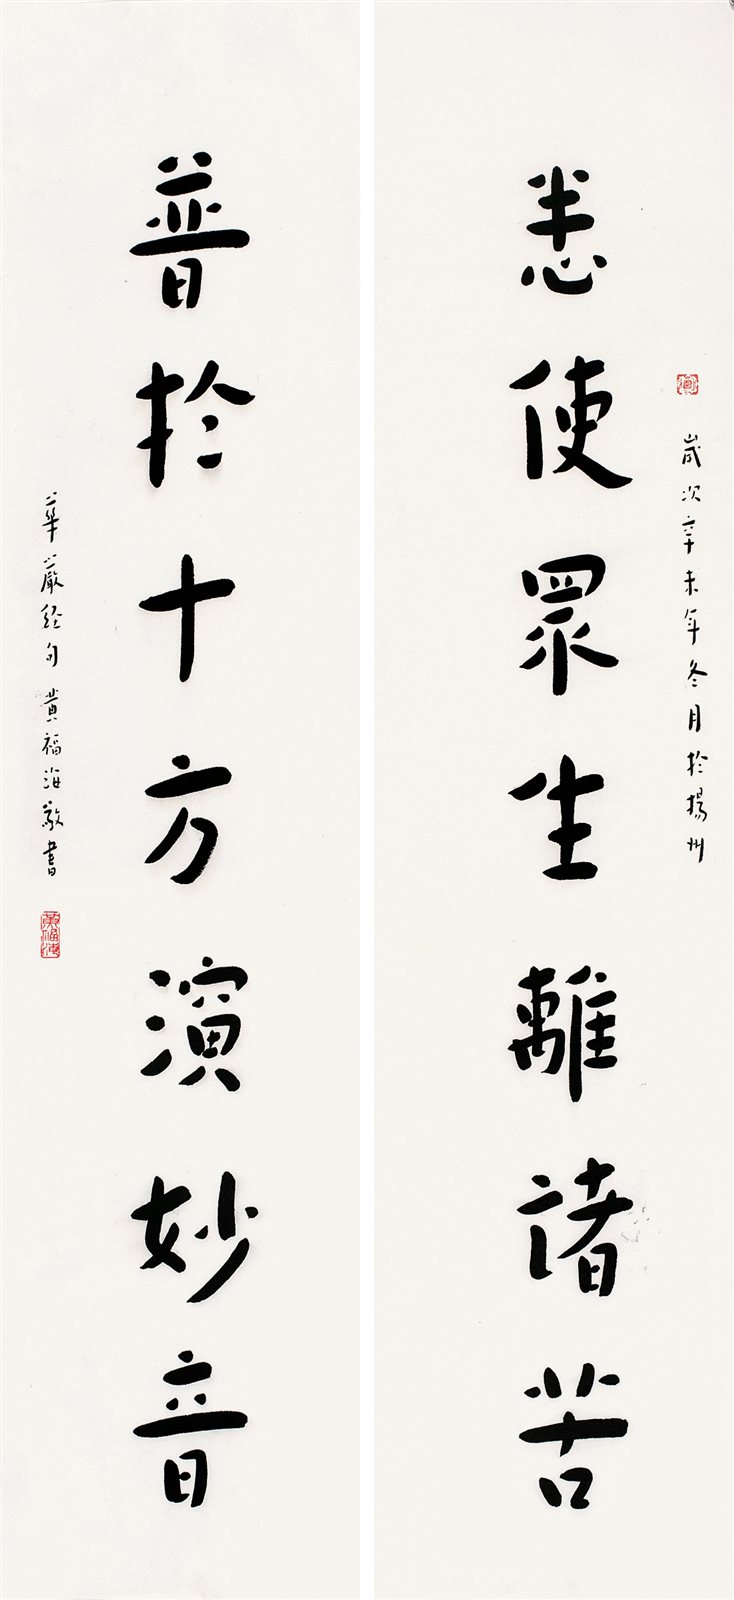 歲次辛未年冬月於揚州
悉使眾生離諸苦
普於十方演妙音
華嚴經句 黄福海敬書
黄福海